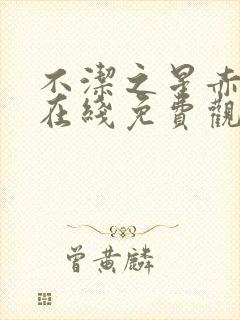 不潔之星赤
在綫免費觀
曾黃麟